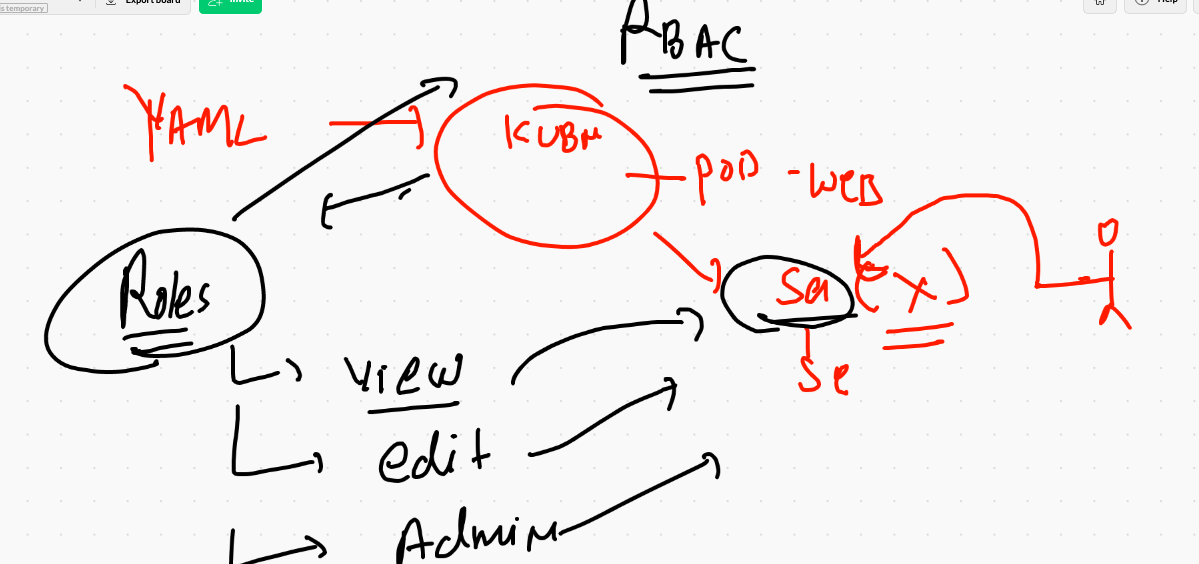 is temporary
Export board
Invite
Help
RBAC
YAML
KUBN
POD - WEB
Roles
Sa (x)
Se
view
edit
Admin